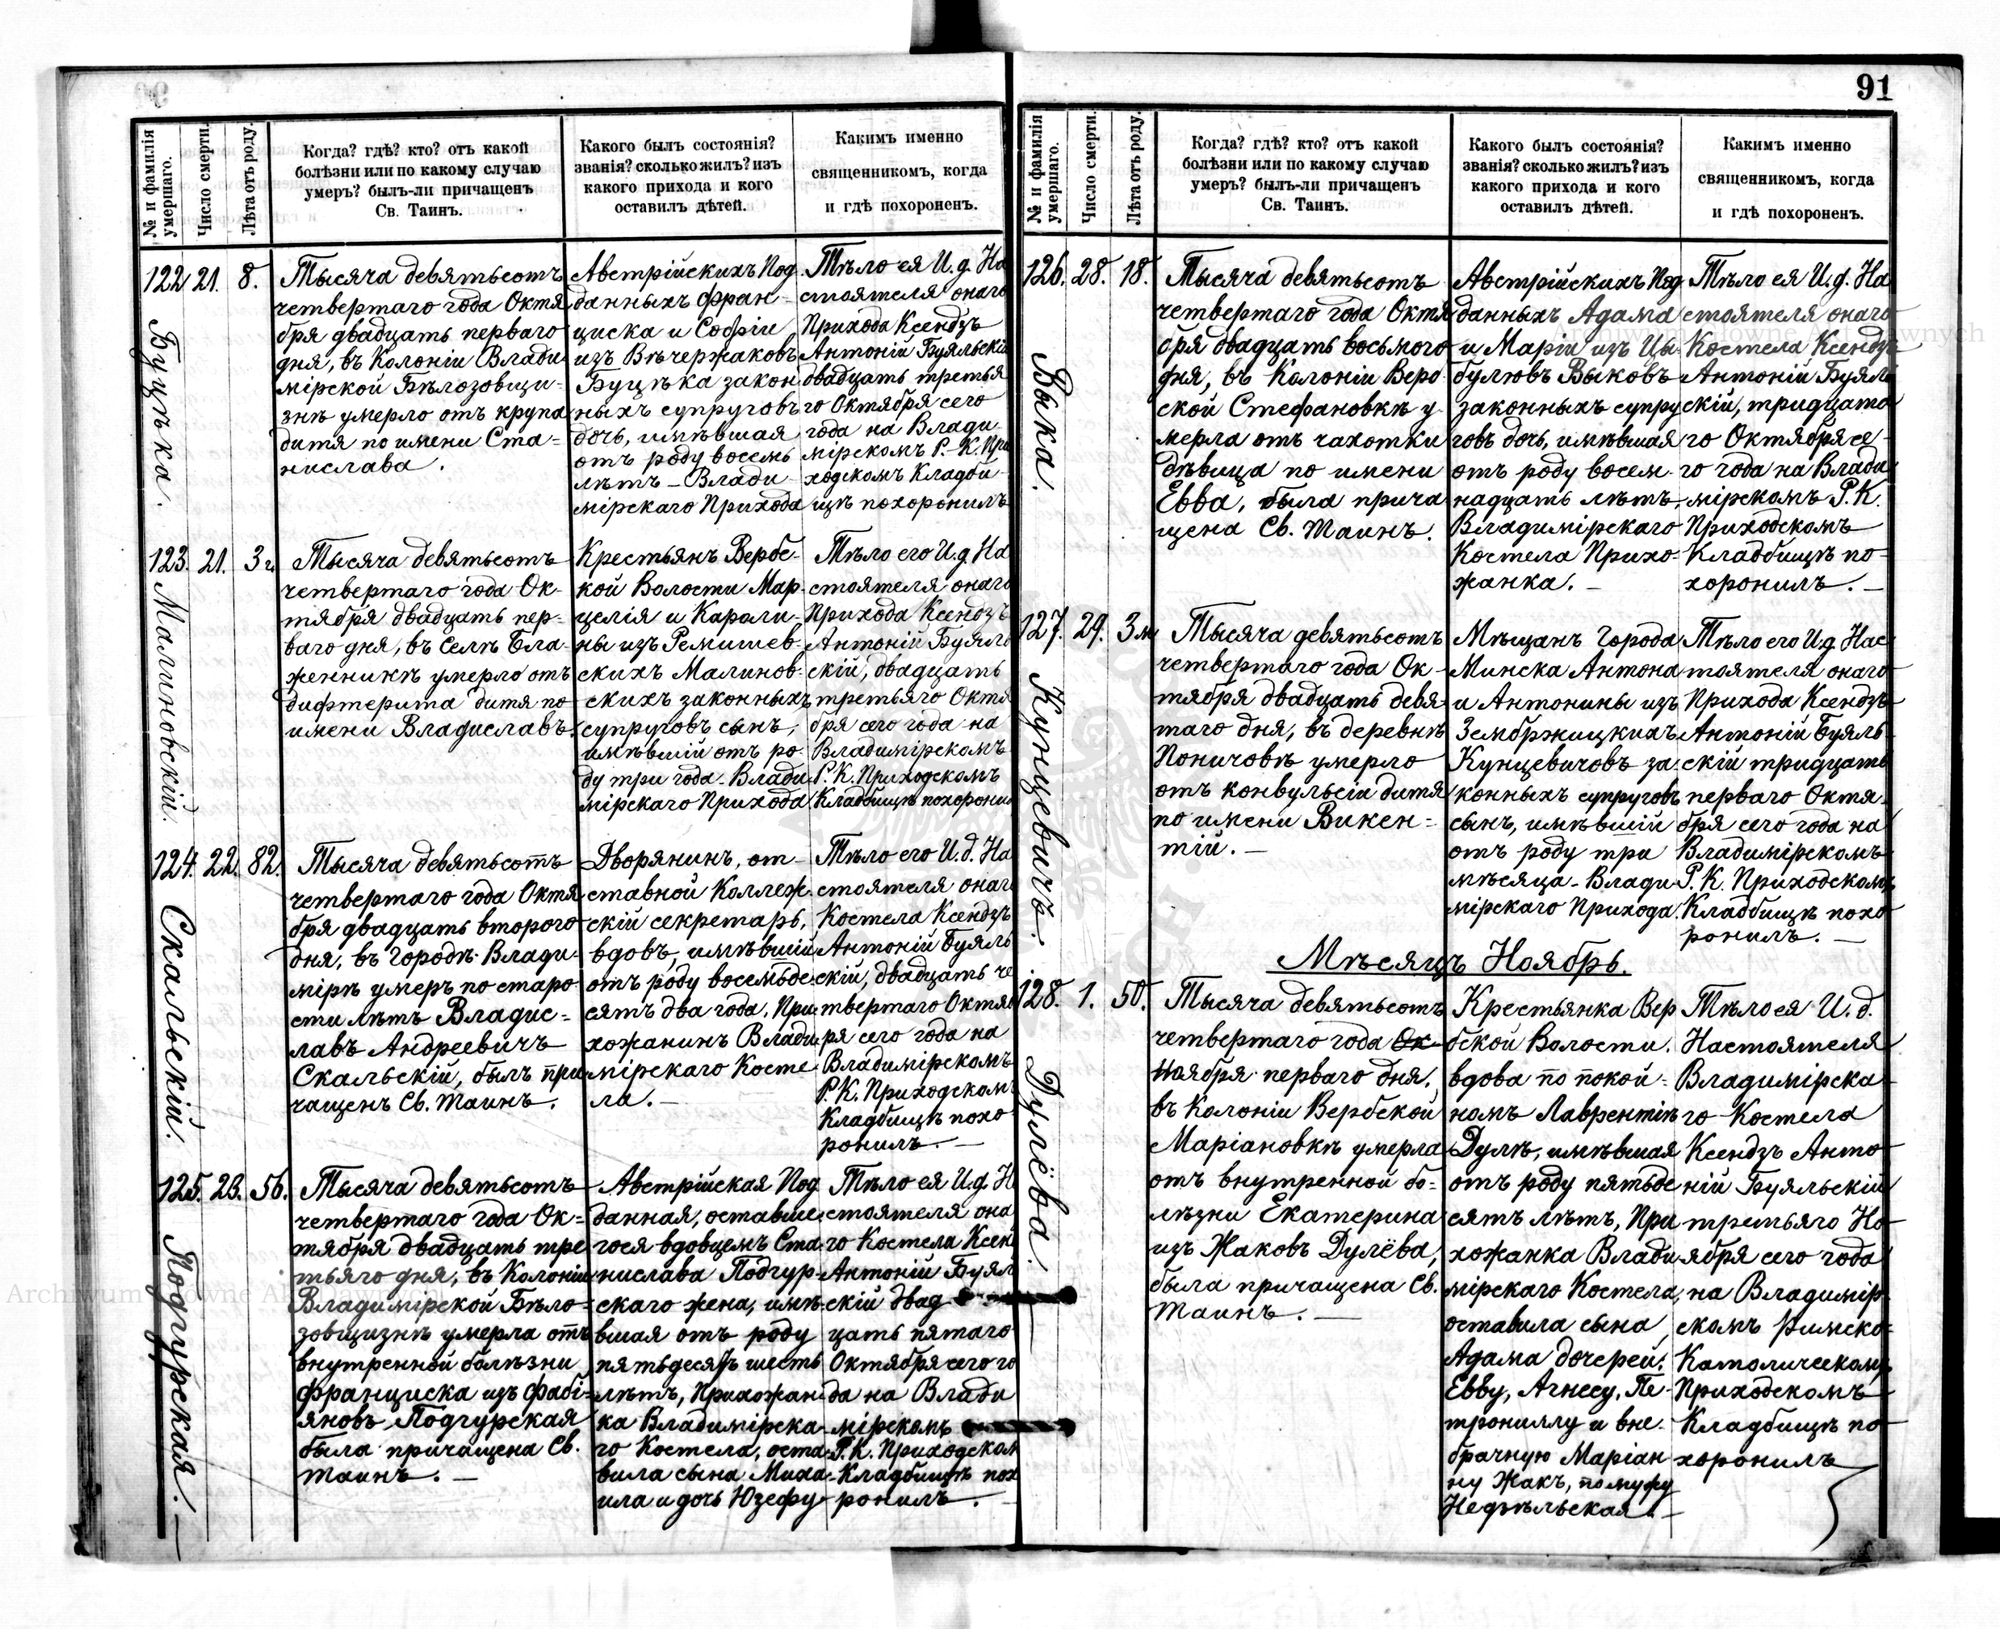 91
№ и фамилія умершаго.
Число смерти.
Лѣта отъ роду.
Когда? гдѣ? кто? отъ какой
болѣзни или по какому случаю
умеръ? былъ-ли причащенъ
Св. Таинъ.
Какого былъ состоянія?
званія? сколько жилъ? изъ
какого прихода и кого
оставилъ дѣтей.
Какимъ именно
священникомъ, когда
и гдѣ похороненъ.
122
Буцѣка.
21.
8.
Тысяча девятьсотъ
четвертаго года Октя
бря двадцать перваго
дня, въ Колоніи Влади
мірской Бѣлозовщи-
знѣ умерло отъ крупа
дитя по имени Ста-
нислава.
Австрійскихъ Под
данныхъ Фран-
циска и Софіи
изъ Вѣчержаковъ
Буцѣка закон
ныхъ супруговъ
дочь, имѣвшая
отъ роду восемь
лѣтъ - Влади-
мірскаго Прихода
Тѣло ея И. д. На
стоятеля онаго
Прихода Ксендзъ
Антоній Буяльскій
двадцать третья
го Октября сего
года на Влади-
мірскомъ Р.-К. При
ходскомъ Кладби-
щѣ похоронилъ
123.
Малиновскій.
21.
3 г.
Тысяча девятьсотъ
четвертаго года Ок-
тября двадцать пер-
ваго дня, въ селѣ Бла-
женникѣ умерло отъ
дифтерита дитя по
имени Владиславъ.
Крестьянъ Вербс-
кой Волости Мар-
целія и Кароли-
ны изъ Ремишев-
скихъ Малинов-
скихъ законныхъ
супруговъ сынъ,
имѣвшій отъ ро-
ду три года. Влади
мірскаго Прихода
Тѣло его И. д. На
стоятеля онаго
Прихода Ксендзъ
Антоній Буяль
скій, двадцать
третьяго Октя
бря сего года на
Владимірскомъ
Р. К. Приходскомъ
Кладбищѣ похорони
124.
Скальскій.
22.
82.
Тысяча девятьсотъ
четвертаго года Октя
бря двадцать второго
дня, въ городѣ Влади-
мірѣ умеръ по старо
сти лѣтъ Владис-
лавъ Андреевичъ
Скальскій, былъ при
чащенъ Св. Таинъ.
Дворянинъ, от-
ставной Коллеж-
скій секретарь,
вдовъ, имѣвшій
отъ роду восемьде-
сятъ два года. При-
хожанинъ Влади
мірскаго Косте
ла.-
Тѣло его И. д. На
стоятеля онаг
Костела Ксендзъ
Антоній Буяль
скій, двадцать че
твертаго Октяб
ря сего года на
Владимірскомъ
Р. К. Приходском
Кладбищѣ похо
ронилъ.-
125.
Подгурская.-
23.
56.
Тысяча девятьсотъ
четвертаго года Ок-
тября двадцать тре
тьяго дня, въ Колоніи
Владимірской Бѣло-
зовщизнѣ умерла отъ
внутренной болѣзни
Франциска изъ Фабі-
яновъ Подгурская
была причащена Св.
Таинъ.-
Австрійская Под
данная, оставше
гося вдовцемъ Ста
нислава Подгур-
скаго жена, имѣ-
вшая отъ роду
пятьдесятъ шесть
лѣтъ, Прихожан-
ка Владимірска-
го Костела, оста-
вила сына Миха-
ила и дочь Юзефу
Тѣло ея И. д. Н
стоятеля она
го Костела Ксен
Антоній Буял
скій двад
цать пятаго
Октября сего го
да на Влади
мірскомъ
Р. К. Приходском
Кладбищѣ пох
ронилъ.-
№ и фамилія умершаго.
Число смерти.
Лѣта отъ роду.
Когда? гдѣ? кто? отъ какой
болѣзни или по какому случаю
умеръ? былъ-ли причащенъ
Св. Таинъ.
Какого былъ состоянія?
званія? сколько жилъ? изъ
какого прихода и кого
оставилъ дѣтей.
Какимъ именно
священникомъ, когда
и гдѣ похороненъ.
126.
Выка.
28.
18.
Тысяча девятьсотъ
четвертаго года Октя
бря двадцать восьмого
дня, въ Колоніи Верб-
ской Стефановкѣ у-
мерла отъ чахотки
дѣвица по имени
Евва, была прича
щена Св. Таинъ.
Австрійскихъ Под
данныхъ Адама
и Маріи изъ Цы-
булювъ Выковъ
законныхъ супру
говъ дочь, имѣвшая
отъ роду восем-
надцать лѣтъ,
Владимірскаго
Костела Прихо-
жанка.-
Тѣло ея И. д. На
стоятеля онаго
Костела Ксендзъ
Антоній Буяль
скій, тридцата
го Октября се-
го года на Влади
мірскомъ Р. К.
Приходскомъ
Кладбищѣ по-
хоронилъ.-
127.
Кунцевичъ.
29.
3 м.
Тысяча девятьсотъ
четвертаго года Ок-
тября двадцать девя-
таго дня, въ деревнѣ
Поничовѣ умерло
отъ конвульсіи дитя
по имени Викен-
тій.-
Мѣщанъ города
Минска Антона
и Антонины изъ
Зембржицкихъ
Кунцевичовъ за
конныхъ супруговъ
сынъ, имѣвшій
отъ роду три
мѣсяца - Влади-
мірскаго Прихода.
Тѣло его И. д. Нас-
тоятеля онаго
Прихода Ксендзъ
Антоній Буяль-
скій тридцать
перваго Октя-
бря сего года на
Владимірскомъ
Р. К. Приходскомъ
Кладбищѣ похо-
ронилъ.-
Мѣсяцъ Ноябрь.
128.
Дулёва.
1.
50.
Тысяча девятьсотъ
четвертаго года Ок-
Ноября перваго дня,
въ Колоніи Вербской
Маріановкѣ умерла
отъ внутренной бо-
лѣзни Екатерина
изъ Жаковъ Дулёва,
была причащена Св.
Таинъ.-
Крестьянка Вер
бской Волости.
вдова по покой-
номъ Лаврентіѣ
Дулѣ, имѣвшая
отъ роду пятьде
сятъ лѣтъ, При
хожанка Влади
мірскаго Костела,
оставила сына
Адама дочерей:
Евву, Агнесу, Пе-
трониллу и вне-
брачную Маріан
ну Жакъ, по мужу
Недзѣльская.-
Тѣло ея И. д.
Настоятеля
Владимірска-
го Костела
Ксендзъ Анто-
ній Буяльскій
третьяго Но-
ября сего года
на Владимір-
скомъ Римско-
Католическомъ
Приходскомъ
Кладбищѣ по-
хоронилъ
Archiwum Główne Akt Dawnych
Archiwum Główne Akt Dawnych